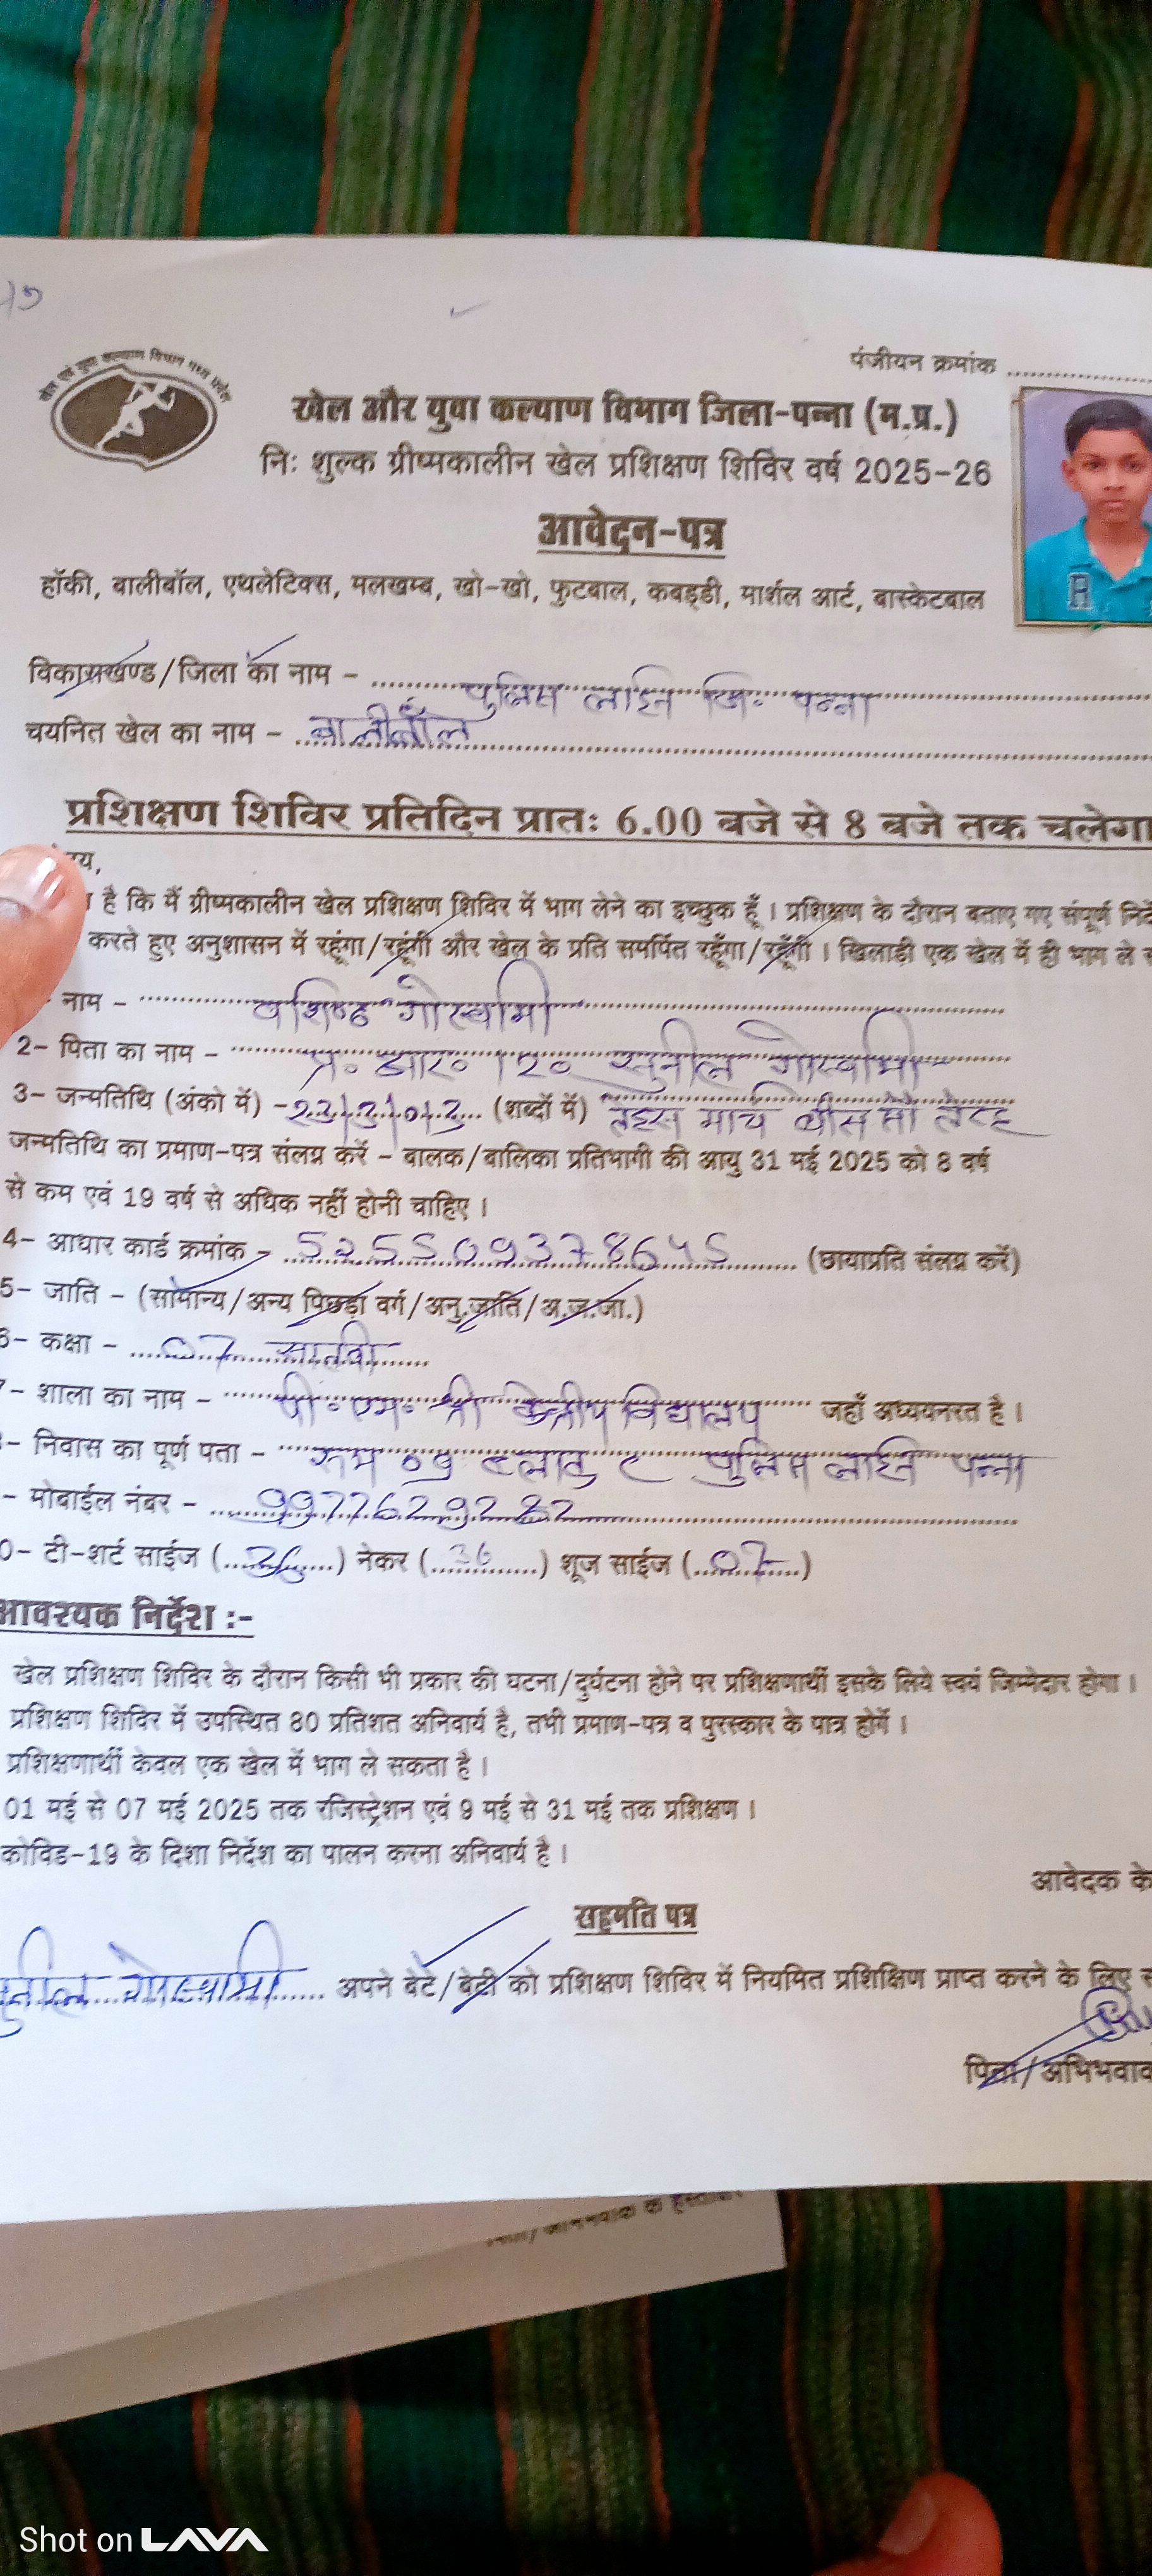 पंजीयन क्रमांक
खेल एवं युवा कल्याण विभाग मध्य प्रदेश
खेल और युवा कल्याण विभाग जिला-पन्ना (म.प्र.)
निः शुल्क ग्रीष्मकालीन खेल प्रशिक्षण शिविर वर्ष 2025-26
आवेदन-पत्र
हॉकी, बालीबॉल, एथलेटिक्स, मलखम्ब, खो-खो, फुटबाल, कबड्डी, मार्शल आर्ट, बास्केटबाल
विकासखण्ड/जिला का नाम - पुलिस लाईन जि॰ पन्ना
चयनित खेल का नाम - बालीबॉल
प्रशिक्षण शिविर प्रतिदिन प्रातः 6.00 बजे से 8 बजे तक चलेगा
है कि मैं ग्रीष्मकालीन खेल प्रशिक्षण शिविर में भाग लेने का इच्छुक हूँ । प्रशिक्षण के दौरान बताए गए संपूर्ण
करते हुए अनुशासन में रहूंगा/रहूंगी और खेल के प्रति समर्पित रहूँगा/रहूँगी । खिलाड़ी एक खेल में ही भाग ले
नाम - वशिष्ठ गोस्वामी
2- पिता का नाम - प्र॰ आर॰ 120 सुनील गोस्वामी
3- जन्मतिथि (अंको में) - (शब्दों में) मार्च बीस सौ तेरह
जन्मतिथि का प्रमाण-पत्र संलग्न करें - बालक/बालिका प्रतिभागी की आयु 31 मई 2025 को 8 वर्ष
से कम एवं 19 वर्ष से अधिक नहीं होनी चाहिए ।
4- आधार कार्ड क्रमांक - 525509378645 (छायाप्रति संलग्न करें)
5- जाति - (सामान्य/अन्य पिछड़ा वर्ग/अनु.जाति/अ.ज.जा.)
6- कक्षा - 07 सातवी
- शाला का नाम - पी॰ एम॰ श्री विद्यालय जहाँ अध्ययनरत है ।
- निवास का पूर्ण पता - रूम 09 पुलिस लाईन पन्ना
- मोबाईल नंबर - 9977629282
0- टी-शर्ट साईज (36) नेकर (36) शूज साईज (07)
आवश्यक निर्देश :-
खेल प्रशिक्षण शिविर के दौरान किसी भी प्रकार की घटना/दुर्घटना होने पर प्रशिक्षणार्थी इसके लिये स्वयं जिम्मेदार होगा ।
प्रशिक्षण शिविर में उपस्थित 80 प्रतिशत अनिवार्य है, तभी प्रमाण-पत्र व पुरस्कार के पात्र होगें ।
प्रशिक्षणार्थी केवल एक खेल में भाग ले सकता है ।
01 मई से 07 मई 2025 तक रजिस्ट्रेशन एवं 9 मई से 31 मई तक प्रशिक्षण ।
कोविड-19 के दिशा निर्देश का पालन करना अनिवार्य है ।
आवेदक के
सहमति पत्र
सुनील गोस्वामी अपने बेटे/बेटी को प्रशिक्षण शिविर में नियमित प्रशिक्षिण प्राप्त करने के लिए
पिता/अभिभवाव
Shot on LAVA